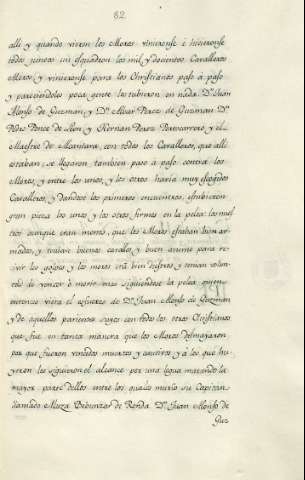 82
alli y quando vieron los Moros vinieronse i hicieronse
todos juntos un esquadron los mil y docientos Cavalleros
Moros y vinieronse para los Christianos paso á paso
y pareciendoles poca gente los tubieron en nada. Dn. Juan
Alonso de Guzman, y Dn. Alvar Perez de Guzman Dn.
Pedro Ponce de Leon y Hernan Perez Portocarrero y el
Maestre de Alcantara con todos los Cavalleros, que alli
estaban se llegaron tambien paso á paso contra los
Moros, y entre los unos, y los otros havia muy escogidos
Cavalleros, y Dandose los primeros encuentros, estubieron
gran pieza los unos y los otros firmes en la pelea: los nues
tros aunque eran menos, que los Moros estaban bien ar-
mados, y traian buenos cavallos y buen animo para re-
civir los golpes y los moros eran bien diestros y tenian volun-
tad de vencer ó morir mas siguiendose la pelea quien
entonces viera el esfuerzo de Dn. Juan Alonso de Guzman
y de aquellos parientes suyos con todos los otros Christianos
que fue en tanta manera que los Moros desmayaron
por que fueron vencidos muertos y cautivos y á los que hu-
yeron les siguieron el alcance por una legua matando la
mayor parte dellos entre los quales murio su Capitan
llamado Muza de Ronda Dn. Juan Alonso de
Guz